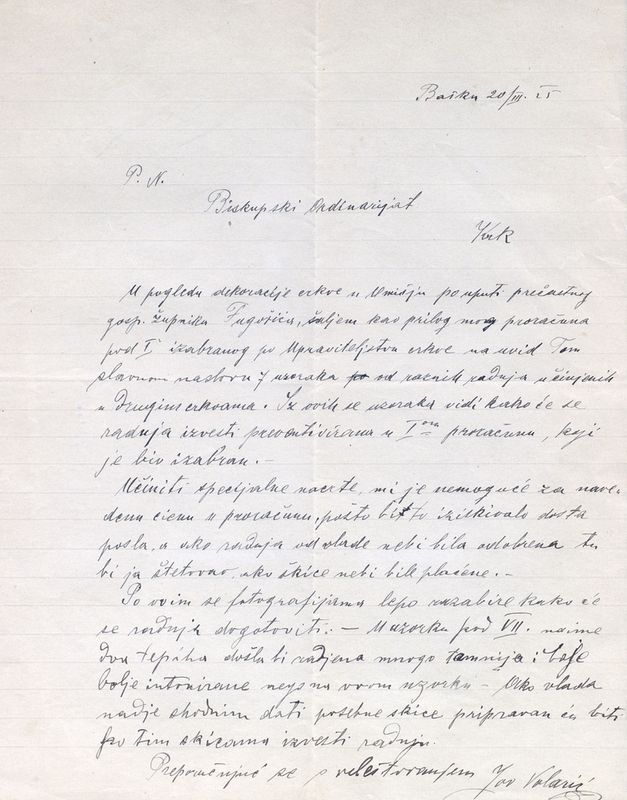 Baška 20/III. 25
P. N.
Biskupski Ordinarijat
Krk
U pogledu dekoracije crkve u Omišju po uputi prečastnog
gosp. župnika Fugošića, šaljem kao prilog mog proračuna
pod I izabranog po Upraviteljstvu crkve na uvid Tom
slavnom naslovu 7 uzoraka od raznih radnja učinjenih
u drugim crkvama. Iz ovih se uzoraka vidi kako će se
radnja izvesti preventivirana u I om proračunu, koji
je bio izabran. –
Učiniti specijalne nacrte, mi je nemoguće za nave-
denu cienu u proračunu, pošto bi to iziskivalo dosta
posla, a ako radnja od vlade nebi bila odobrena tu
bi ja štetovao, ako škice nebi bile plaćene. –
Po ovim se fotografijama lepo razabire kako će
se radnja dogotoviti. – U uzorku pod VII. naime
dva tepiha došla bi radjena mnogo tamnija i bolje
bolje intonirane nego na ovom uzorku – Ako vlada
nadje shodnim dati posebne skice pripravan ću biti
po tim skicama izvesti radnju.
Preporučujuć se s velestovanjem Jos Volarić